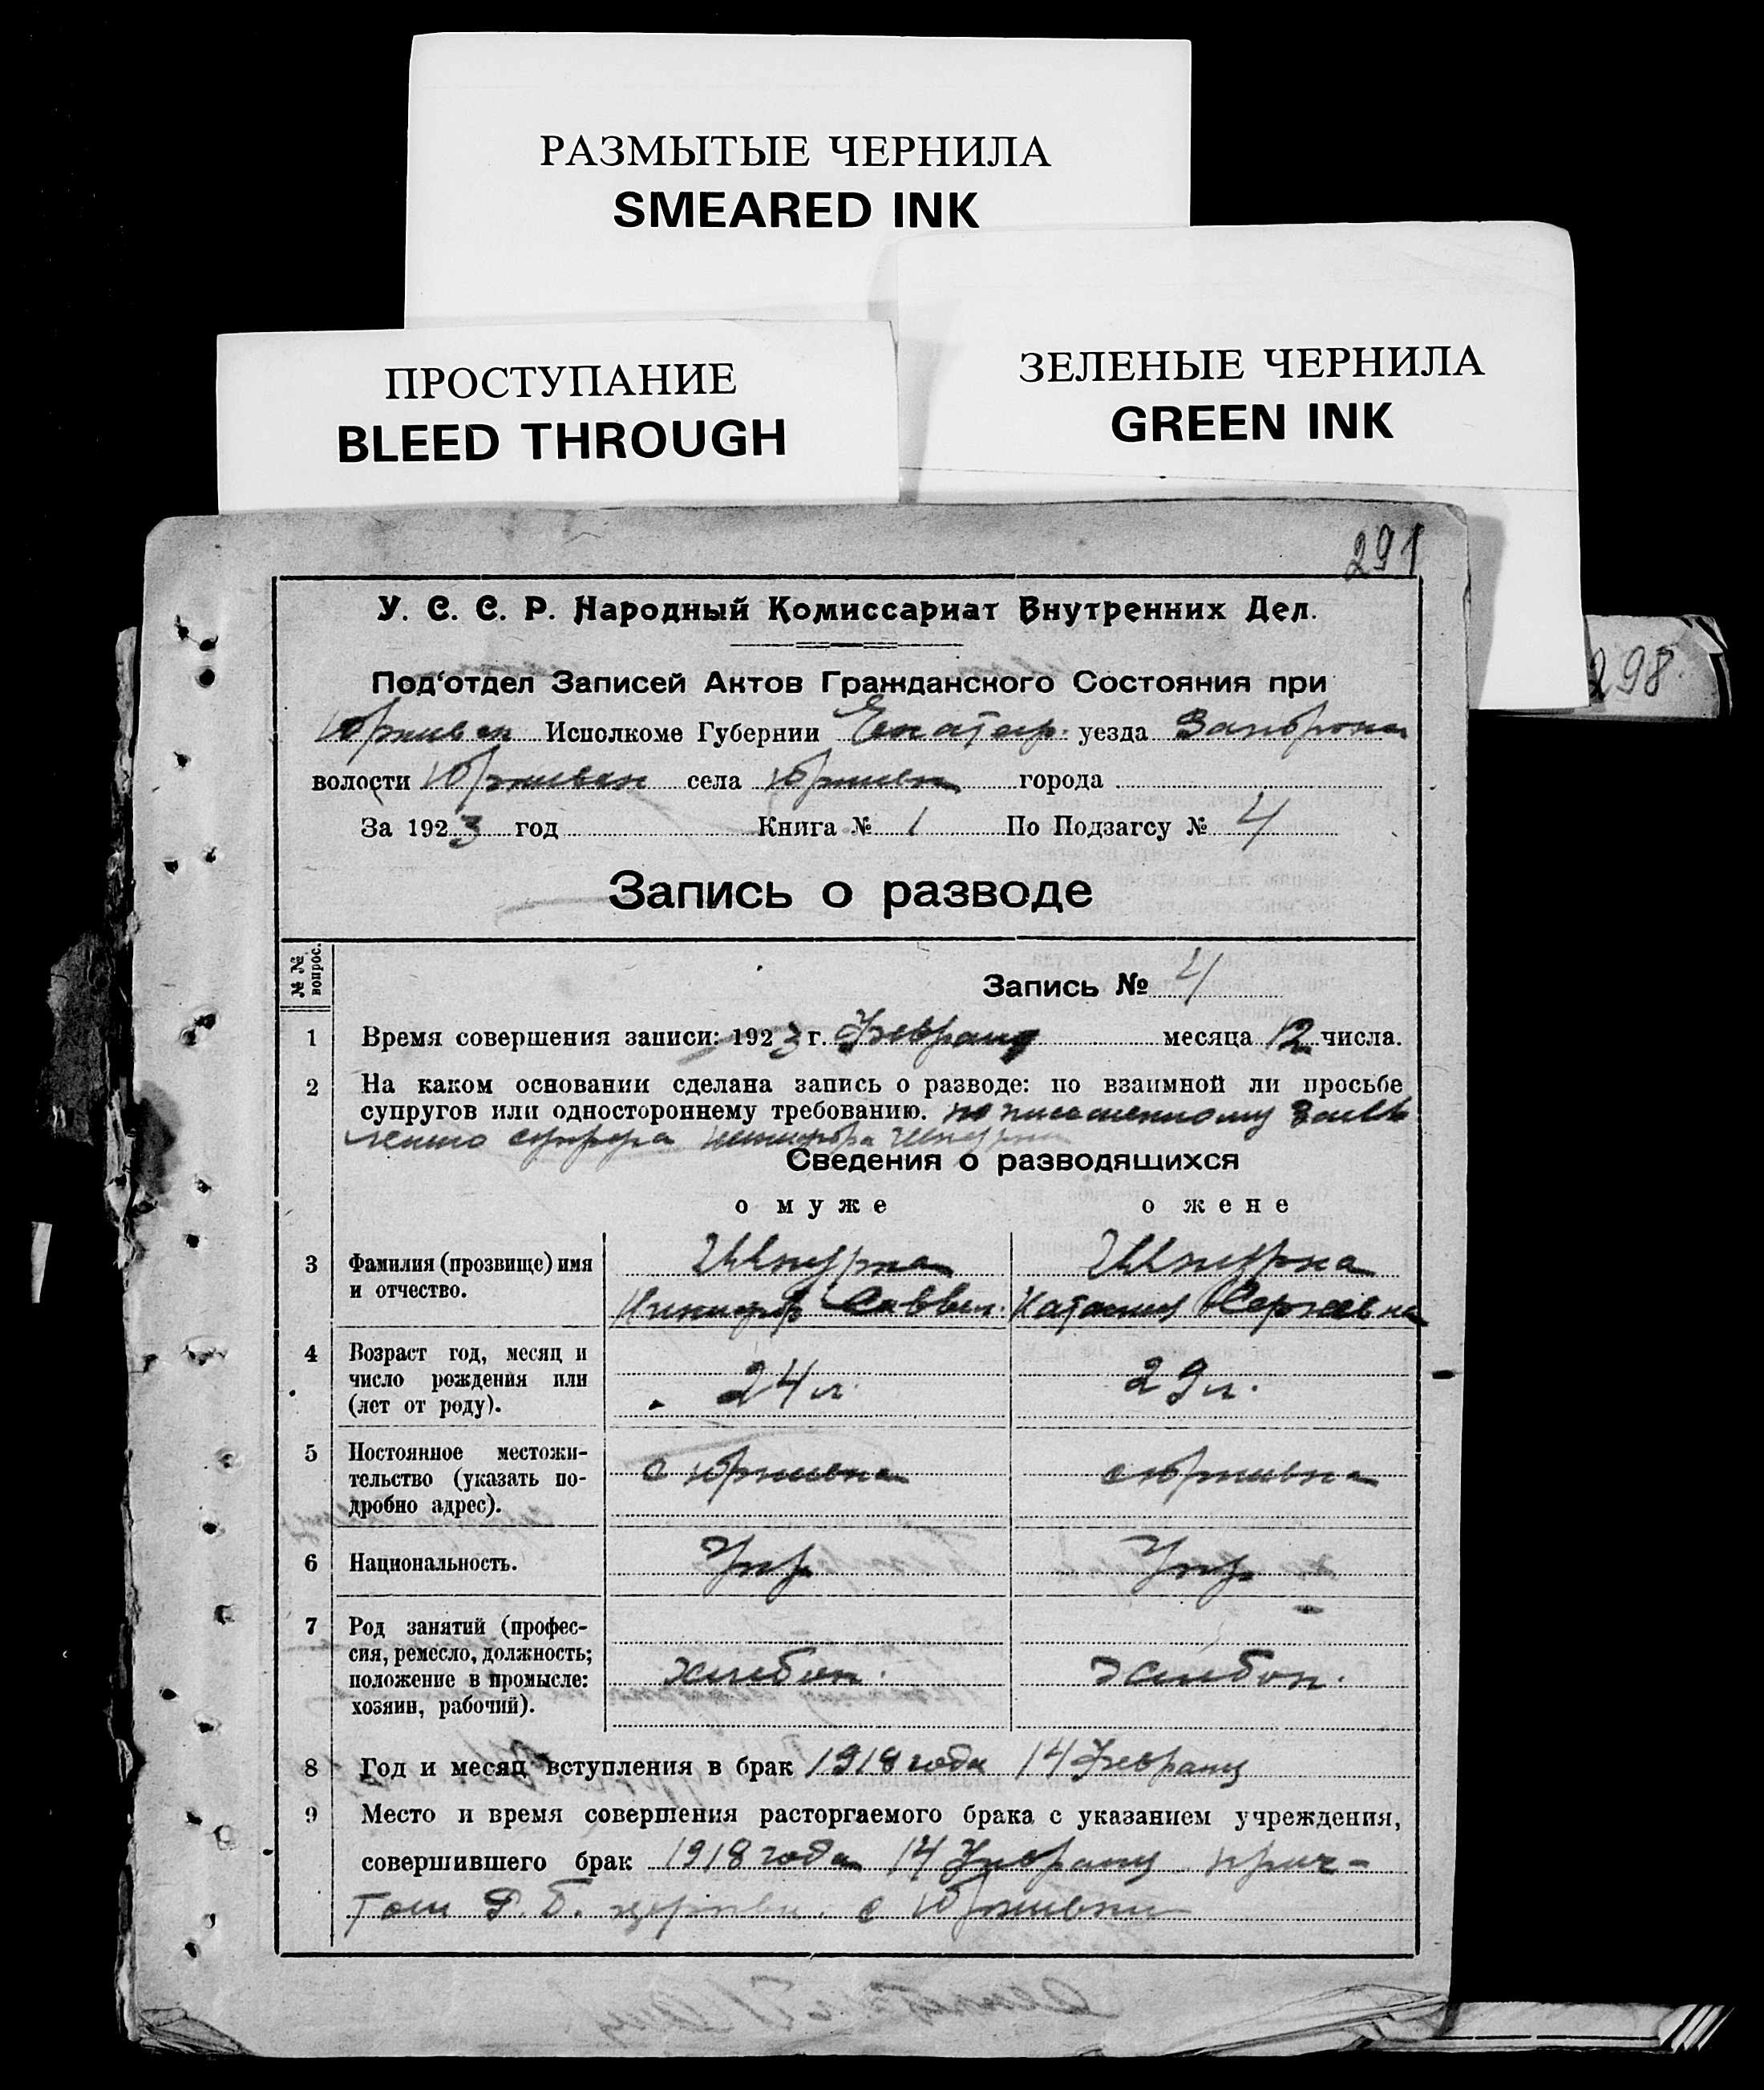 РАЗМЫТЫЕ ЧЕРНИЛА
SMEARED INK
ПРОСТУПАНИЕ
BLEED THROUGH
ЗЕЛЕНЫЕ ЧЕРНИЛА
GREEN INK
291
298.
У. С. С. Р. Народный Комиссариат Внутренних Дел.
Под'отдел Записей Актов Гражданского Состояния при
Исполкоме Губернии Екатер. уезда
волости села города
За 1923 год Книга № 1 По Подзагсу № 4
Запись о разводе
№ № вопрос.
Запись № 4
1 Время совершения записи: 1923 г. Февраля месяца 12 числа.
2 На каком основании сделана запись о разводе: по взаимной ли просьбе
супругов или одностороннему требованию. по письменному заяв
Сведения о разводящихся
о муже о жене
3 Фамилия (прозвище) имя Шкурка Шкурка
и отчество. Никифор Саввич. Сергеевна
4 Возраст год, месяц и
число рождения или 24 л. 29 л.
(лет от роду).
5 Постоянное местожи-
тельство (указать по- с
дробно адрес).
6 Национальность. Укр. Укр.
7 Род занятий (профес-
сия, ремесло, должность;
положение в промысле: хлебоп. хлебоп.
хозяин, рабочий).
8 Год и месяц вступления в брак 1918 года 14 Февраля
9 Место и время совершения расторгаемого брака с указанием учреждения,
совершившего брак 1918 года 14 Февраля прич-
том Р. Б. церкви. с